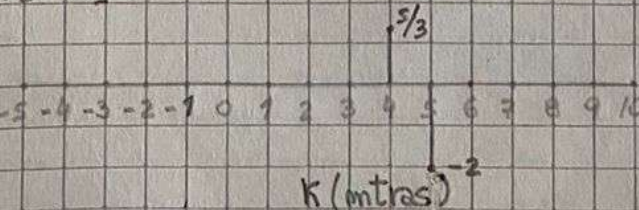 5/3
-5 -4 -3 -2 -1 0 1 2 3 4 5 6 7 8 9 10
-2
K (mtras)